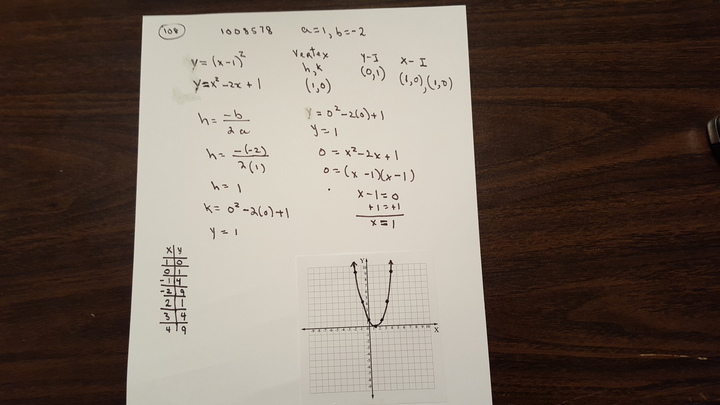 108 1008578 a=1, b=-2
y=(x-1)²
y=x²-2x+1
vertex
h,k
(1,0)
y-I
(0,1)
x-I
(1,0),(1,0)
h=-b/2a
h=-(-2)/2(1)
h=1
k=0²-2(0)+1
y=1
y=0²-2(0)+1
y=1
0=x²-2x+1
0=(x-1)(x-1)
x-1=0
+1=+1
x=1
x|y
1|0
0|1
-1|4
-2|9
2|1
3|4
4|9
Y
X